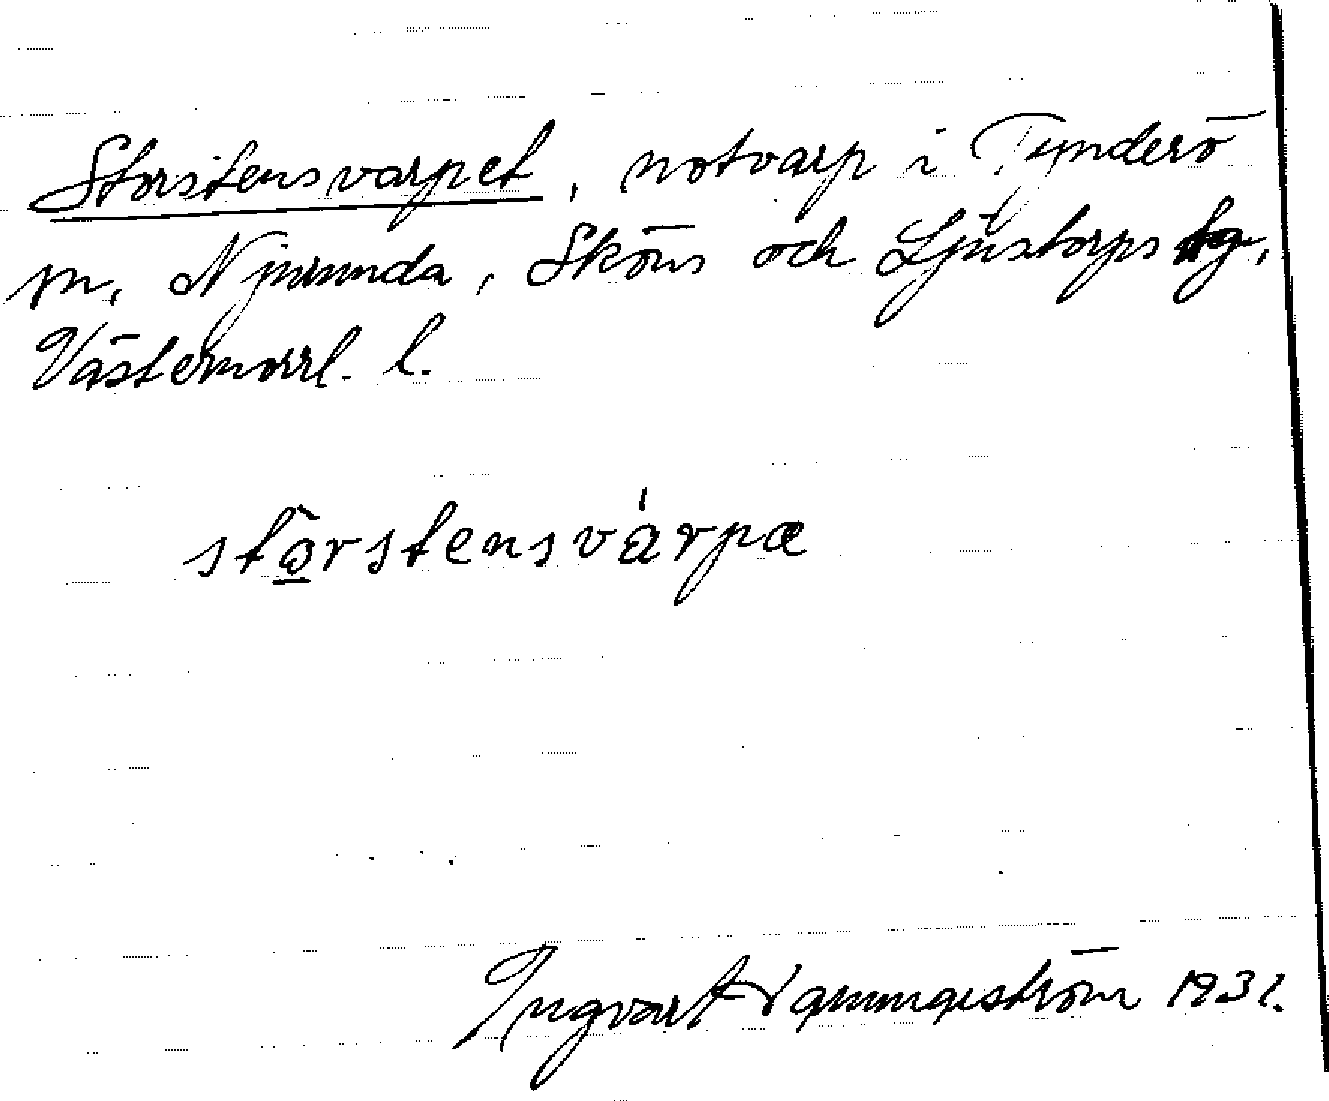 Storstensvarpet, notvarp i Tynderö
sn, Njurunda, Sköns och Ljustorps tg,
Västernorrl. l.
stōrstensvárpæ
Ingvar 1931.